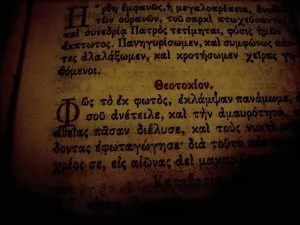 Ἤρθη ἐμφανῶς, ἡ μεγαλοπρέπεια,
τῶν οὐρανῶν, τοῦ σαρκὶ πτωχεύσαντος
καὶ συνεδρίᾳ Πατρὸς τετίμηται, φύσις ἡμῶν
ἔκπτωτος. Πανηγυρίσωμεν, καὶ συμφώνως πάν
τες ἀλαλάξωμεν, καὶ κροτήσωμεν χεῖρας
θόμενοι.
Θεοτοκίον.
Φῶς τὸ ἐκ φωτός, ἐκλάμψαν πανάμωμε,
σοῦ ἀνέτειλε, καὶ τὴν ἀμαυρότητα,
πᾶσαν διέλυσε, καὶ τοὺς νυκτὶ
δοντας ἐφωταγώγησε· διὰ τοῦτο
χρέος σε, εἰς αἰῶνας ἀεὶ